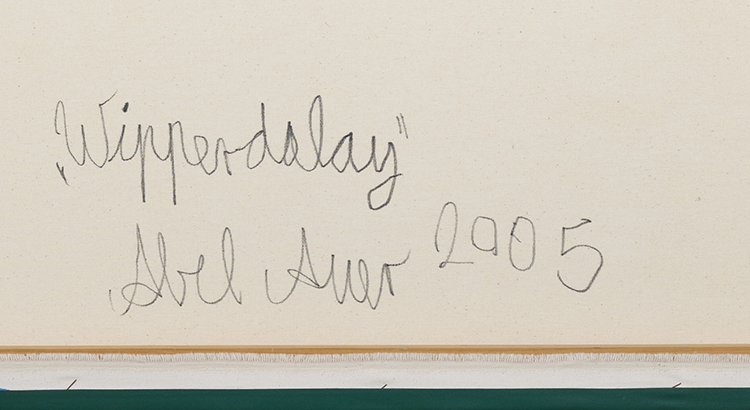 „Wipperdalay"
Abel Auer 2005